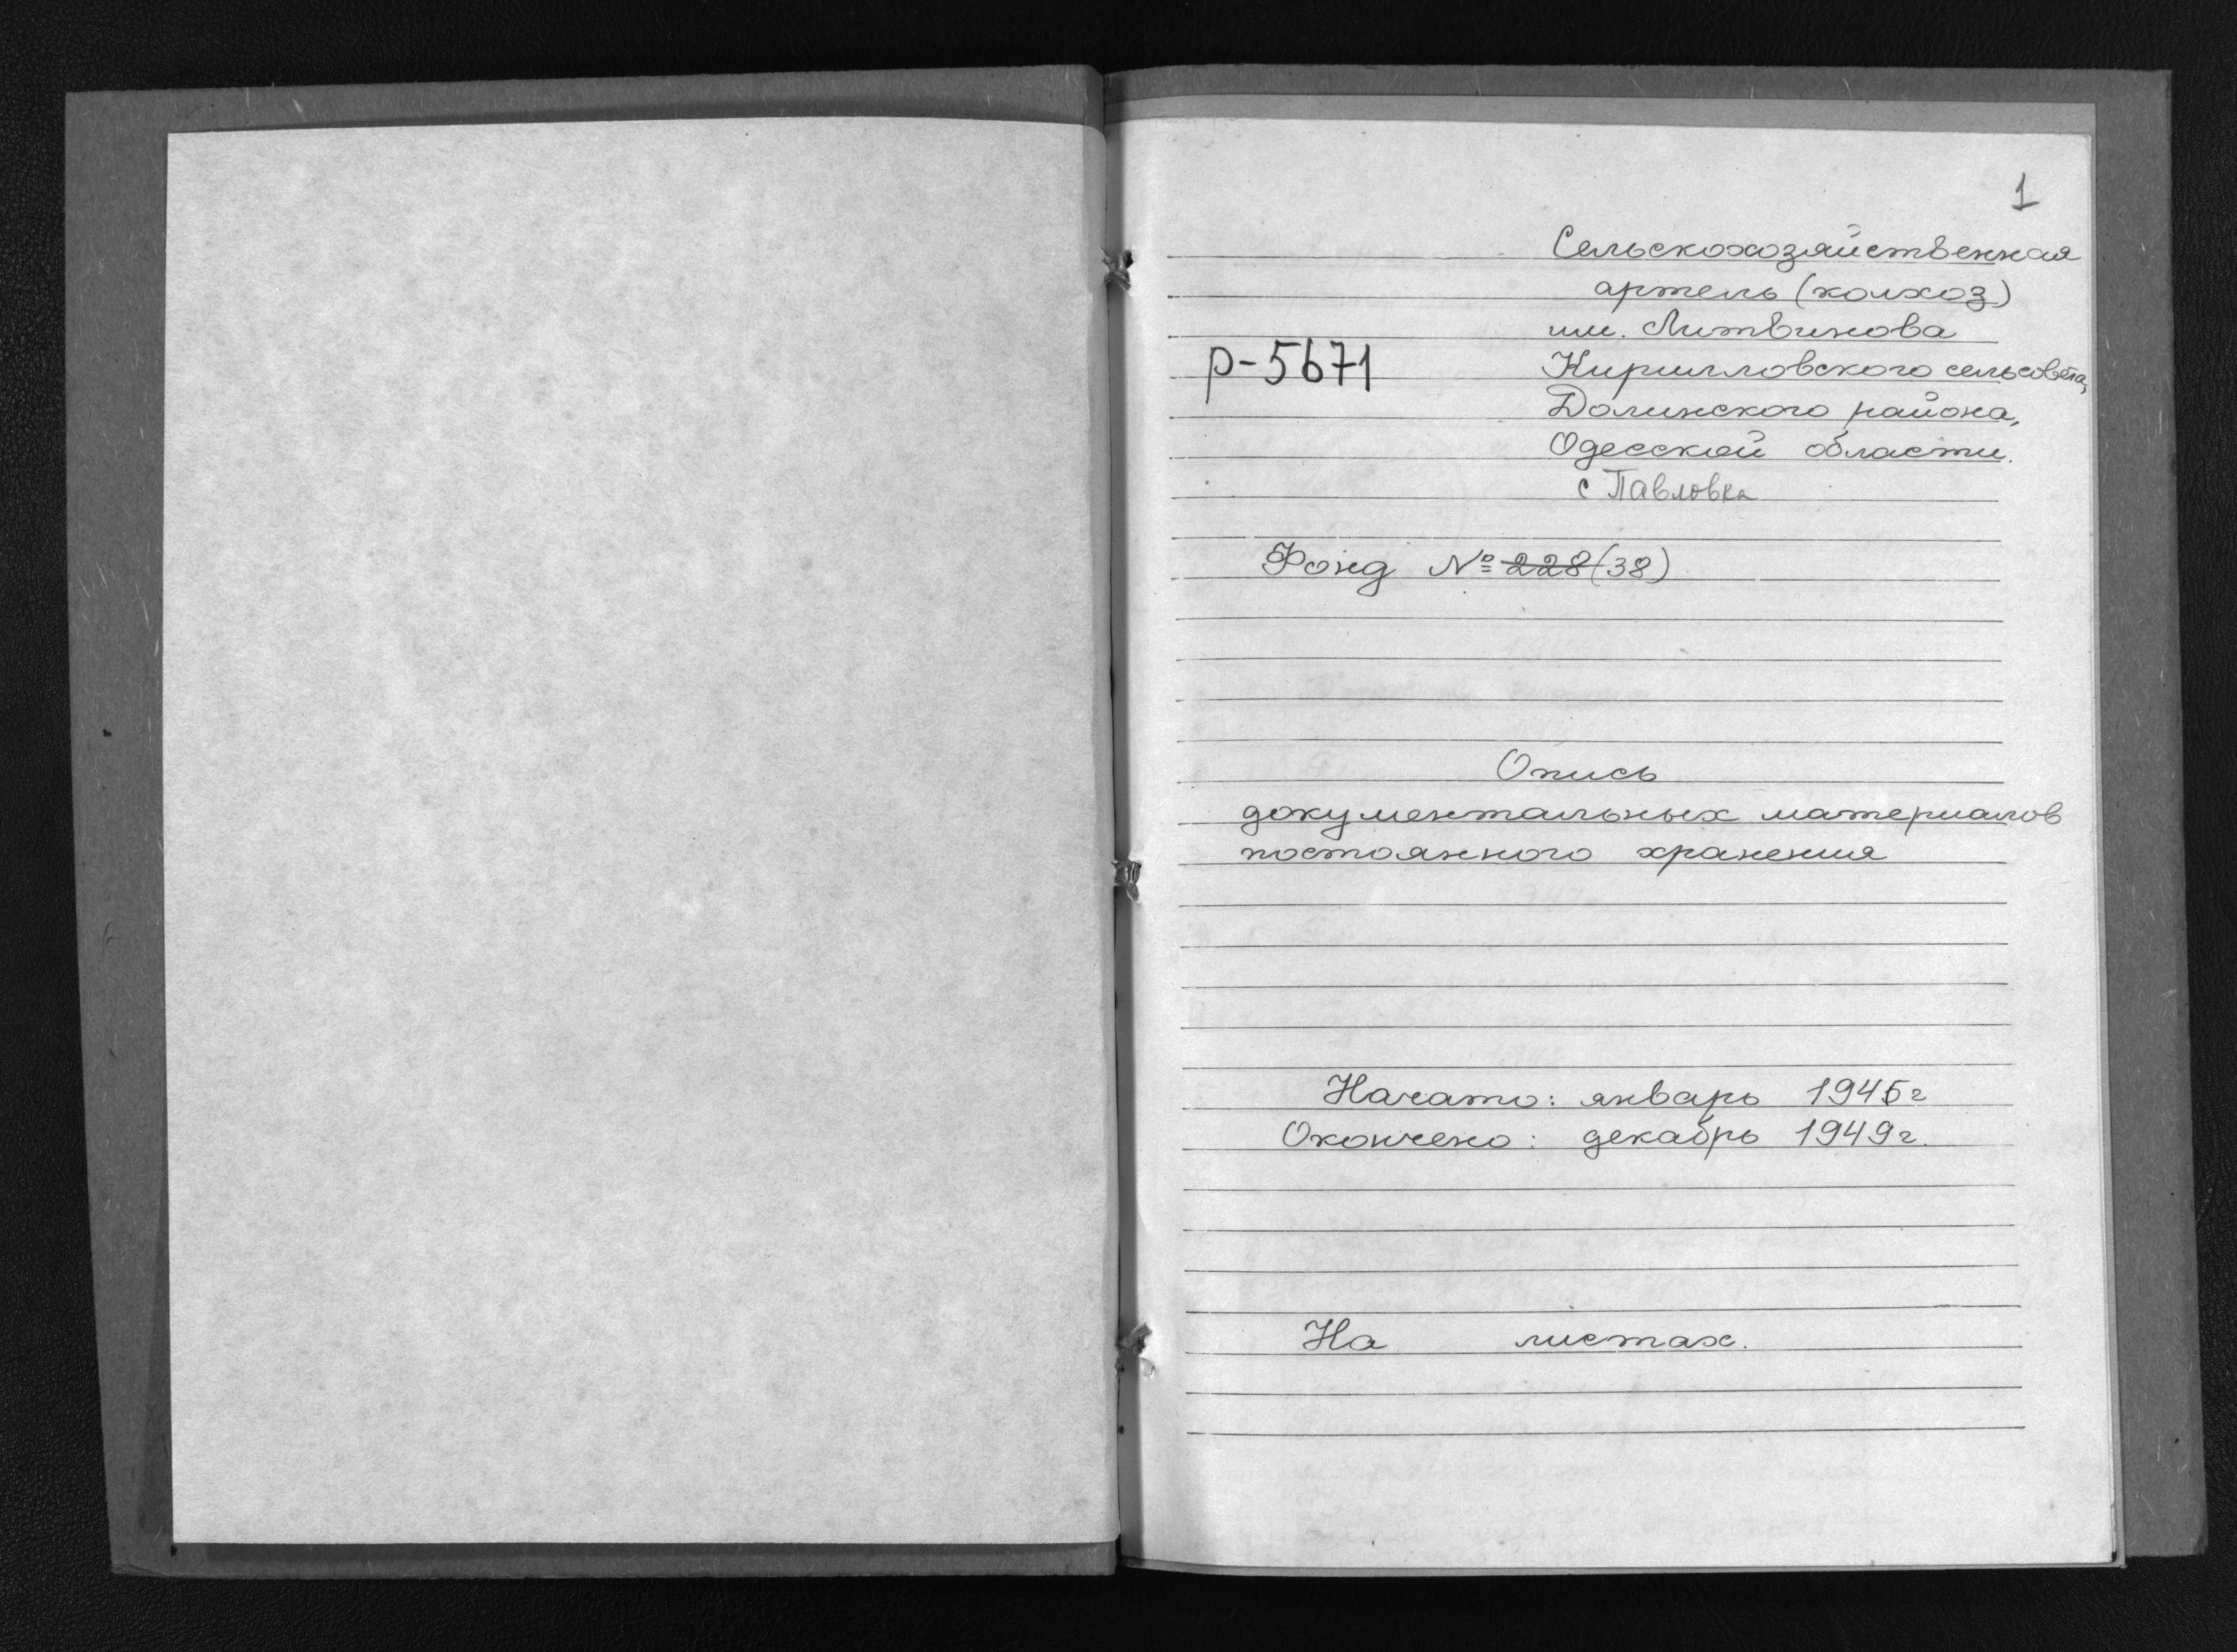 1
Сельскохозяйственная
артель (колхоз)
им. Литвинова
р-5671
Кирилловского сельсовета,
Долинского района,
Одесской области.
с Павловка
Фонд № 228 (38)
Опись
документальных материалов
постоянного хранения
Начато: январь 1945г
Окончено: декабрь 1949г.
На листах.